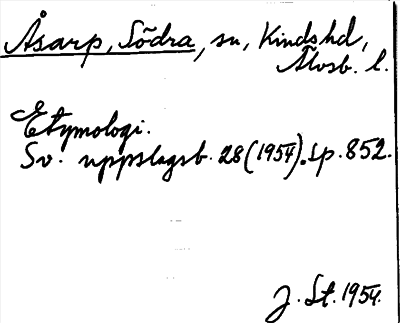 Åsarp, Södra, sn, Kindshd,
Älvsb. l.
Etymologi.
Sv. uppslagsb. 28 (1954). sp. 852.
J. St. 1954.